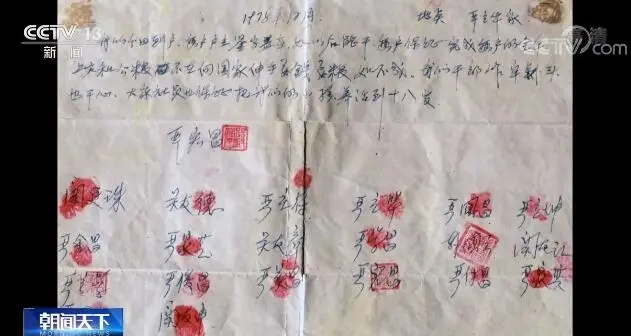 TV 13
新闻
CCTV
1978年12月 地点 严立华家
我们分田到户,每户户主签字盖章,如以后能干,每户保证完成每户的全
上交和公粮,不在向国家伸手要钱要粮,如不成,我们干部作牢刹头
也干心,大家社员也保证把我们的小孩养活到十八岁
严宏昌
关廷珠 关友德 严立符 严立华 严国昌 严立坤
严金昌 严家芝 关友章 严学昌 关友江
严俊昌 严美昌 严宏昌 严付昌 严家其
关友申
朝闻天下